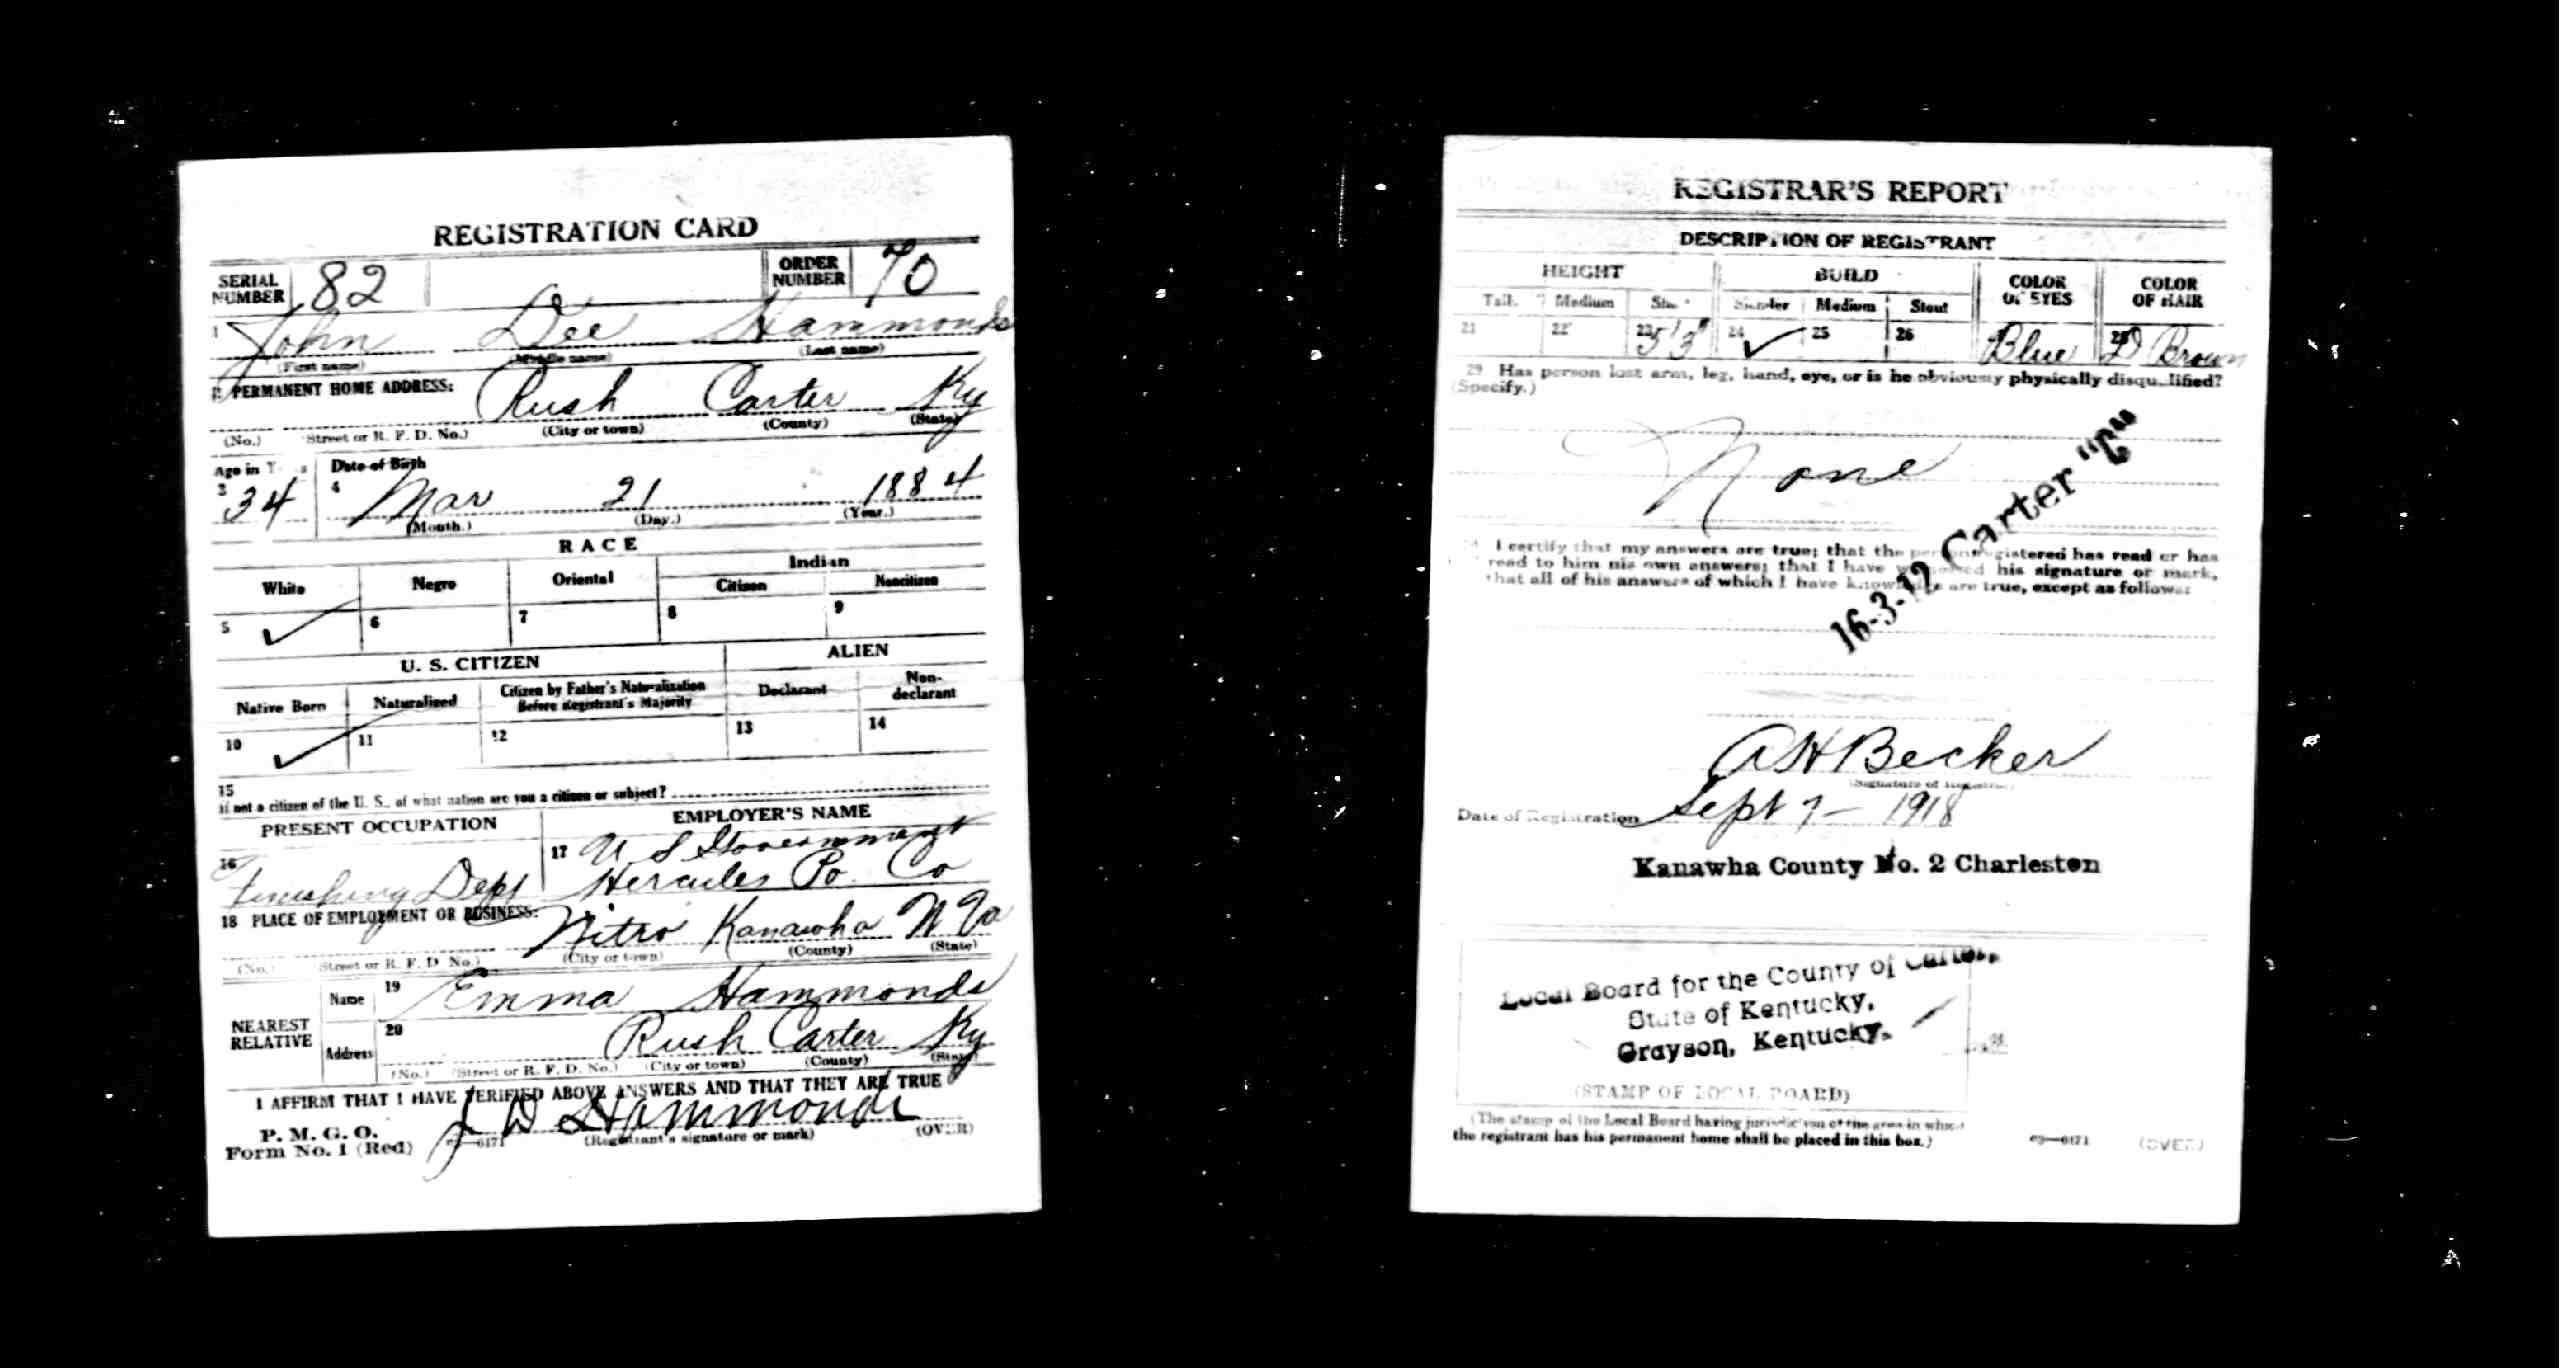 REGISTRATION CARD
SERIAL NUMBER 82 ORDER NUMBER 70
1 John Dee Hammonds
(First name) (Middle name) (Last name)
2 PERMANENT HOME ADDRESS: Rush Carter Ky
(No.) (Street or R. F. D. No.) (City or town) (County) (State)
Age in Date of Birth
3 34 4 Mar 21 1884
(Month.) (Day.) (Year.)
RACE
White Negro Oriental Indian
Citizen Noncitizen
5 ✓ 6 7 8 9
U. S. CITIZEN ALIEN
Native Born Naturalized Citizen by Father's Naturalization Before Registrant's Majority Declarant Non-declarant
10 ✓ 11 12 13 14
15
If not a citizen of the U. S., of what nation are you a citizen or subject?
PRESENT OCCUPATION EMPLOYER'S NAME
16 Finishing Dept 17 U. S Government
Hercules Po. Co
18 PLACE OF EMPLOYMENT OR BUSINESS:
Nitro Kanawha W Va
(No.) (Street or R. F. D. No.) (City or town) (County) (State)
NEAREST RELATIVE
Name 19 Emma Hammonds
Address 20 Rush Carter Ky
(No.) (Street or R. F. D. No.) (City or town) (County) (State)
I AFFIRM THAT I HAVE VERIFIED ABOVE ANSWERS AND THAT THEY ARE TRUE
P. M. G. O.
Form No. 1 (Red) J D Hammonds
03—6171 (Registrant's signature or mark) (OVER)
REGISTRAR'S REPORT
DESCRIPTION OF REGISTRANT
HEIGHT BUILD COLOR OF EYES COLOR OF HAIR
Tall Medium Slender Medium Stout
21 22 23 5'3" 24 ✓ 25 26 Blue 28 D Brown
29 Has person lost arm, leg, hand, eye, or is he obviously physically disqualified?
(Specify.)
None
I certify that my answers are true; that the person registered has read or has
read to him his own answers; that I have witnessed his signature or mark,
that all of his answers of which I have knowledge are true, except as follows:
16-3-12 Carter "C"
A H Becker
(Signature of Registrar)
Date of Registration Sept 7 - 1918
Kanawha County No. 2 Charleston
Local Board for the County of Carter,
State of Kentucky,
Grayson, Kentucky.
(STAMP OF LOCAL BOARD)
(The stamp of the Local Board having jurisdiction of the area in which
the registrant has his permanent home shall be placed in this box.)
03—6171 (OVER)